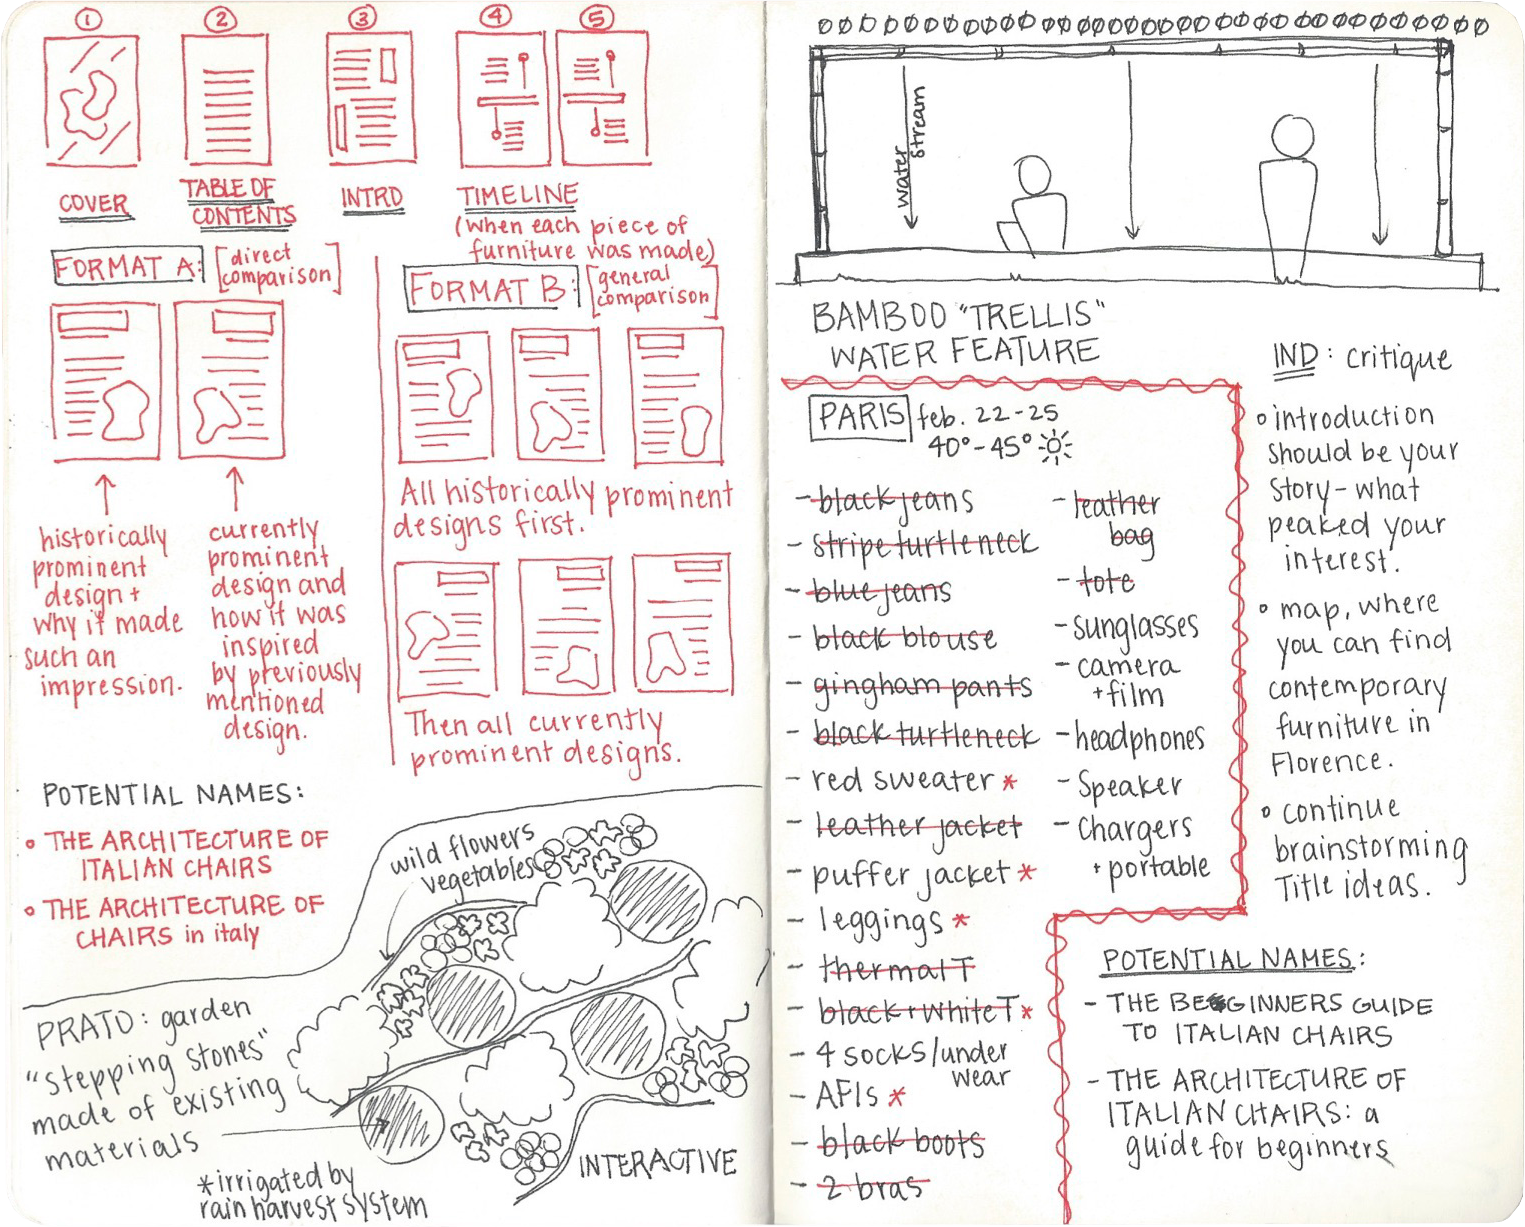 1 2 3 4 5
COVER
TABLE OF
CONTENTS
INTRO
TIMELINE
(when each piece of
furniture was made)
FORMAT A:
[direct
comparison]
FORMAT B:
[general
comparison]
historically
prominent
design +
why it made
such an
impression.
currently
prominent
design and
how it was
inspired
by previously
mentioned
design.
All historically prominent
designs first.
Then all currently
prominent designs.
POTENTIAL NAMES:
• THE ARCHITECTURE OF
ITALIAN CHAIRS
• THE ARCHITECTURE OF
CHAIRS in italy
wild flowers
vegetables
PRATO: garden
"stepping stones"
made of existing
materials
*irrigated by
rain harvest system
INTERACTIVE
water
stream
BAMBOO "TRELLIS"
WATER FEATURE
PARIS feb. 22-25
40°-45°
- black jeans
- stripe turtleneck
- blue jeans
- black blouse
- gingham pants
- black turtleneck
- red sweater *
- leather jacket
- puffer jacket *
- leggings *
- thermal T
- black + white T *
- 4 socks/under
wear
- AFIs *
- black boots
- 2 bras
- leather
bag
- tote
- sunglasses
- camera
+ film
- headphones
- Speaker
- chargers
+ portable
IND: critique
• introduction
should be your
story - what
peaked your
interest.
• map, where
you can find
contemporary
furniture in
Florence.
• continue
brainstorming
Title ideas.
POTENTIAL NAMES:
- THE BEGINNERS GUIDE
TO ITALIAN CHAIRS
- THE ARCHITECTURE OF
ITALIAN CHAIRS: a
guide for beginners